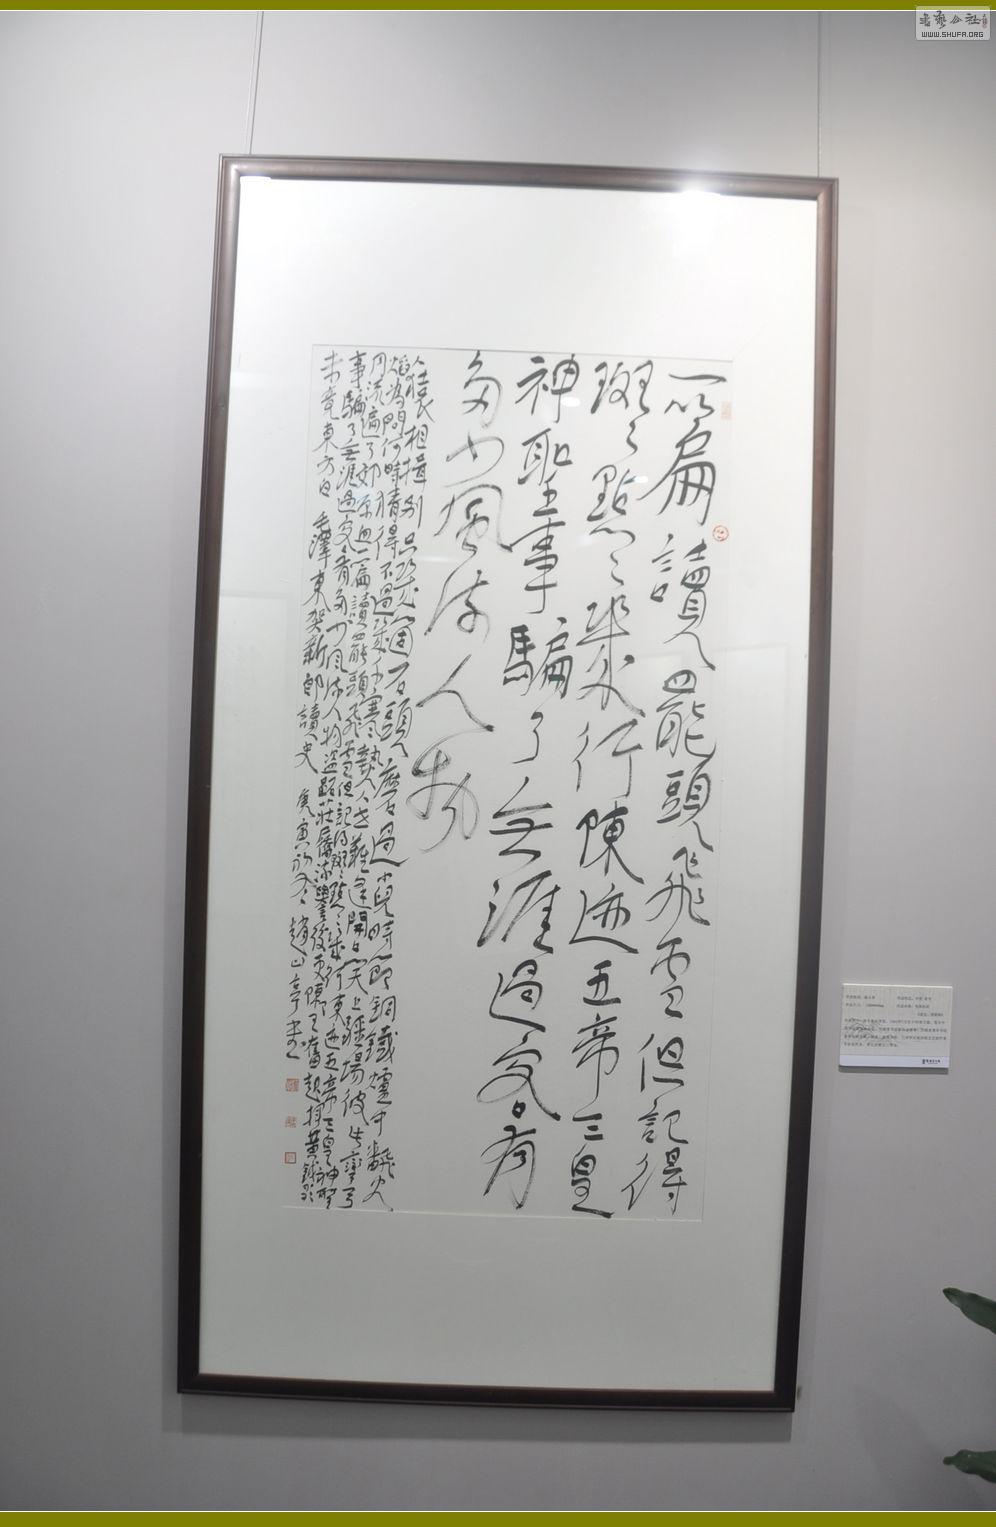 書藝公社
WWW.SHUFA.ORG
一篇讀罷頭飛雪但記得
斑々點々幾行陳迹五帝三皇
神聖事騙了無涯過客有
多少風流人物
人猿相揖别只幾個石頭磨過小兒時節銅鐵爐中翻火
焰為問何時猜得不過幾千寒熱人世難逢開口笑上疆場彼此彎弓
月流遍了郊原血一篇讀罷頭飛雪但記得斑々點々幾行陳迹五帝三皇神聖
事騙了無涯過客有多少風流人物盜跖莊屩流譽後更陳王奮起揮黄鉞歌
未竟東方白 毛澤東賀新郎讀史 庚寅初冬 趙山亭書